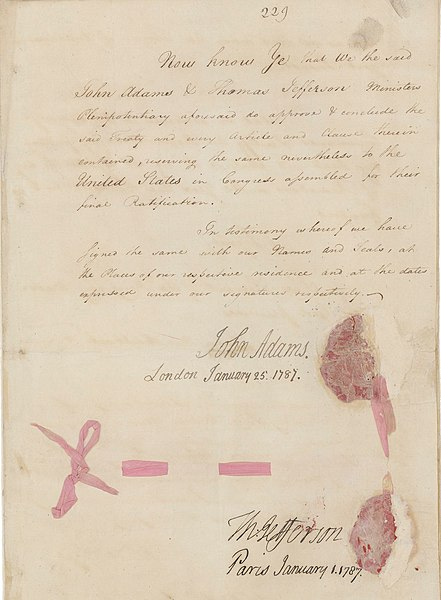 229
Now know Ye that We the said
John Adams & Thomas Jefferson Ministers
Plenipotentiary aforesaid do approve & conclude the
said Treaty and every Article and Clause therein
contained, reserving the same nevertheless to the
United States in Congress assembled for their
final Ratification.
In testimony whereof we have
signed the same with our Names and Seals, at
the Places of our respective residence and at the dates
expressed under our signatures respectively.
John Adams.
London January 25. 1787.
Th: Jefferson
Paris January 1. 1787.